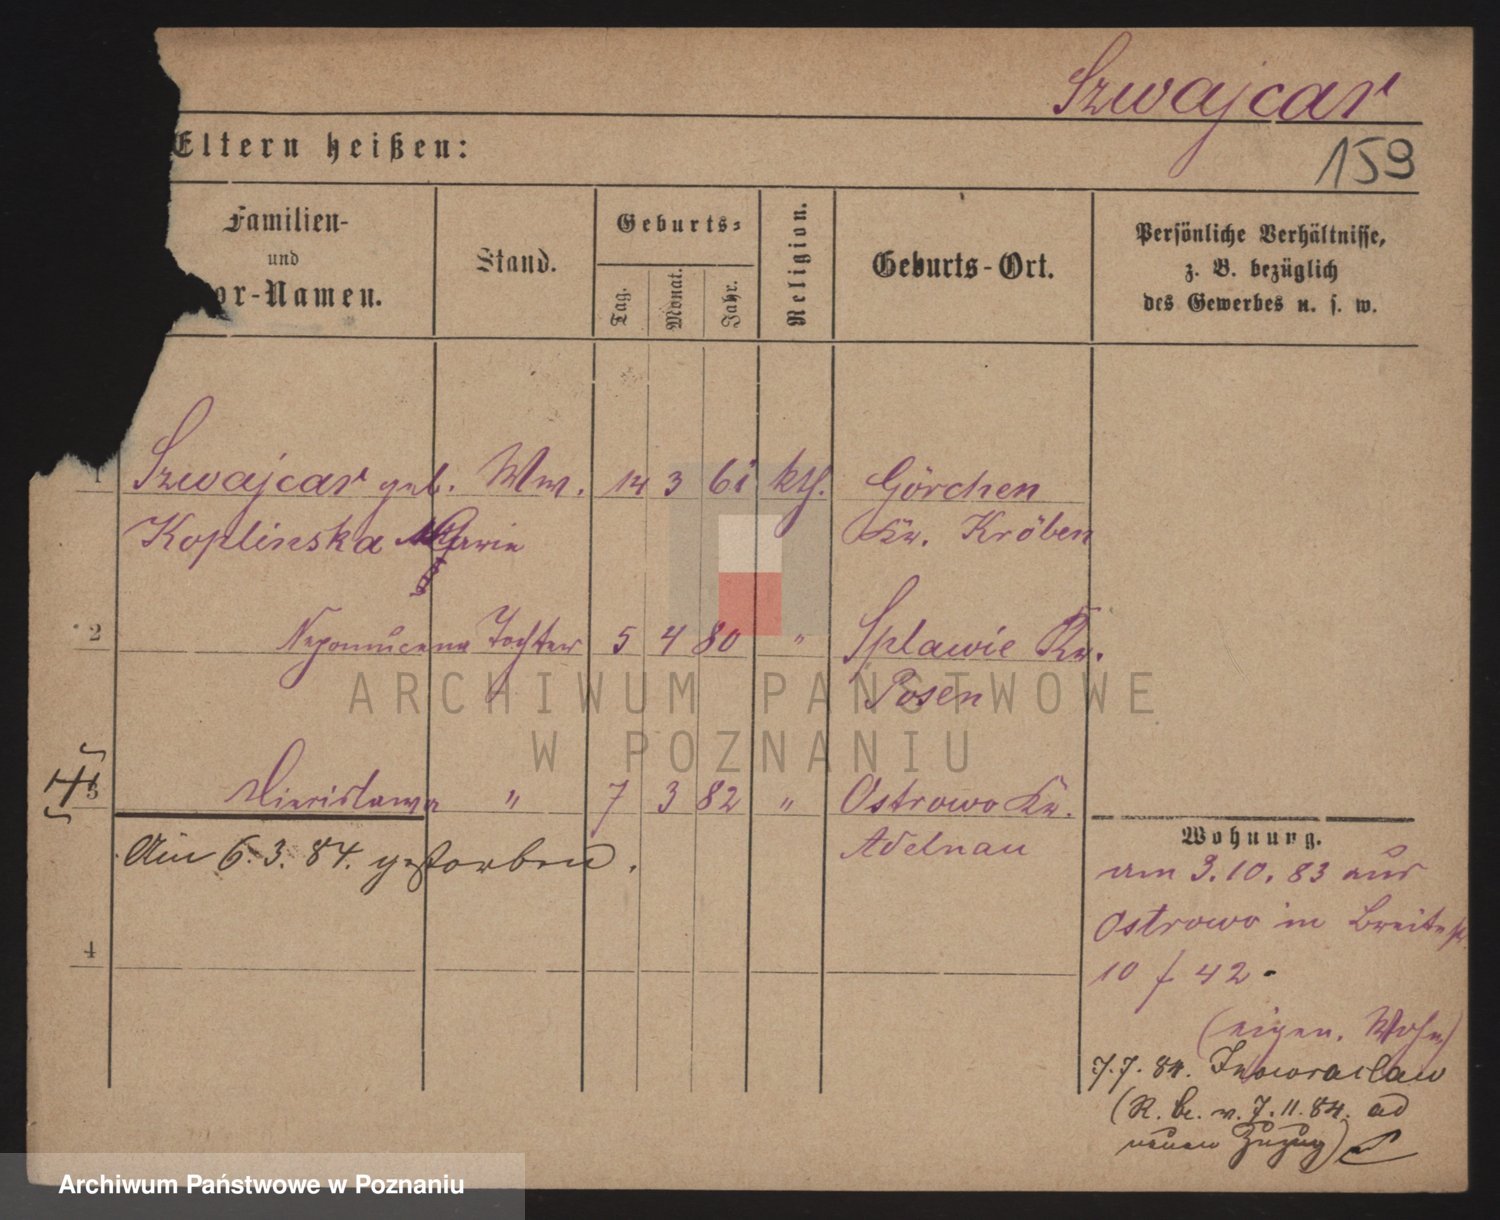 Szwajcar
159
Eltern heißen:
Familien-
und
or-Namen.
Stand.
Geburts-
Tag.
Monat.
Jahr.
Religion.
Geburts-Ort.
Persönliche Verhältnisse,
z. B. bezüglich
des Gewerbes u. s. w.
1 Szwajcar geb. Ww. 14 3 61 kth. Görchen
Koplinska Marie Kr. Kröben
2 Nepomucena Tochter 5 4 80 " Splawie Kr.
Posen
3 " 7 3 82 " Ostrowo Kr.
Adelnau
Am 6. 3. 84. gestorben.
4
Wohnung.
am 3.10.83 aus
Ostrowo in Breitestr
10 f 42
(eigen. Wohn)
7.7.84. Inowraclaw
(R. Br. v. 7.11.84. ad
neuen Zuzug)
ARCHIWUM PAŃSTWOWE
W POZNANIU
Archiwum Państwowe w Poznaniu